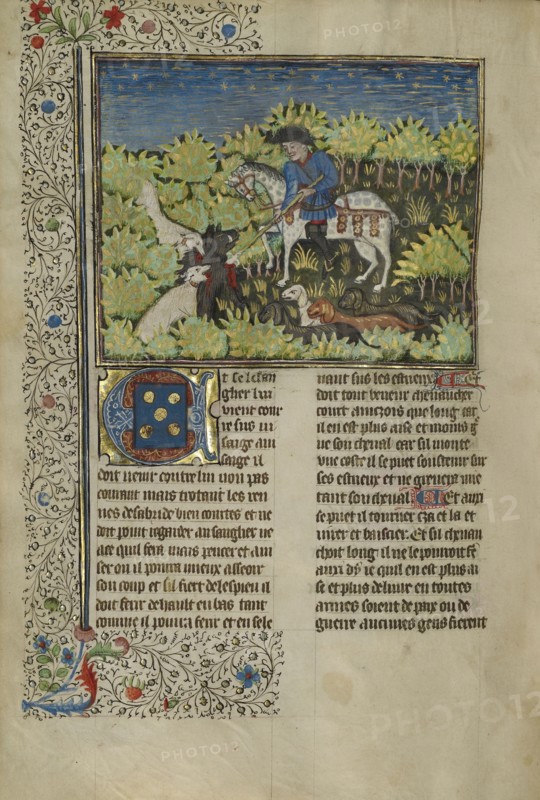 PHOTO12
t se le san
gher lui
vient cour
re sus vi
sarge au
sarge il
doit venir contre lui non pas
courant mais trotant les ren
nes de sa bride bien courtes et ne
doit point regarder au sanglier ne
a ce quil fera mais penser et aui
ser ou il pourra mieux asseoir
son coup et sil fiert de lespieu il
doit ferir de hault en bas tant
comme il pourra ferir et en sele
uant sus les estrieux Et
doit tout veneur cheuaucher
court ainczois que long car
il en est plus aise et moins gr
ue son cheual car sil monte
une coste il se puet soustenir sur
ses estrieux et ne greuera mie
tant son cheual Et aussi
se puet il tourner cza et la et
virer et baissier Et sil cheuau
choit long il ne le pourroit fe
aussi dy ie quil en est plus ai
se et plus deliure en toutes
armes soient de paix ou de
guerre aucunes gens fierent
PHOTO12
PHOTO12